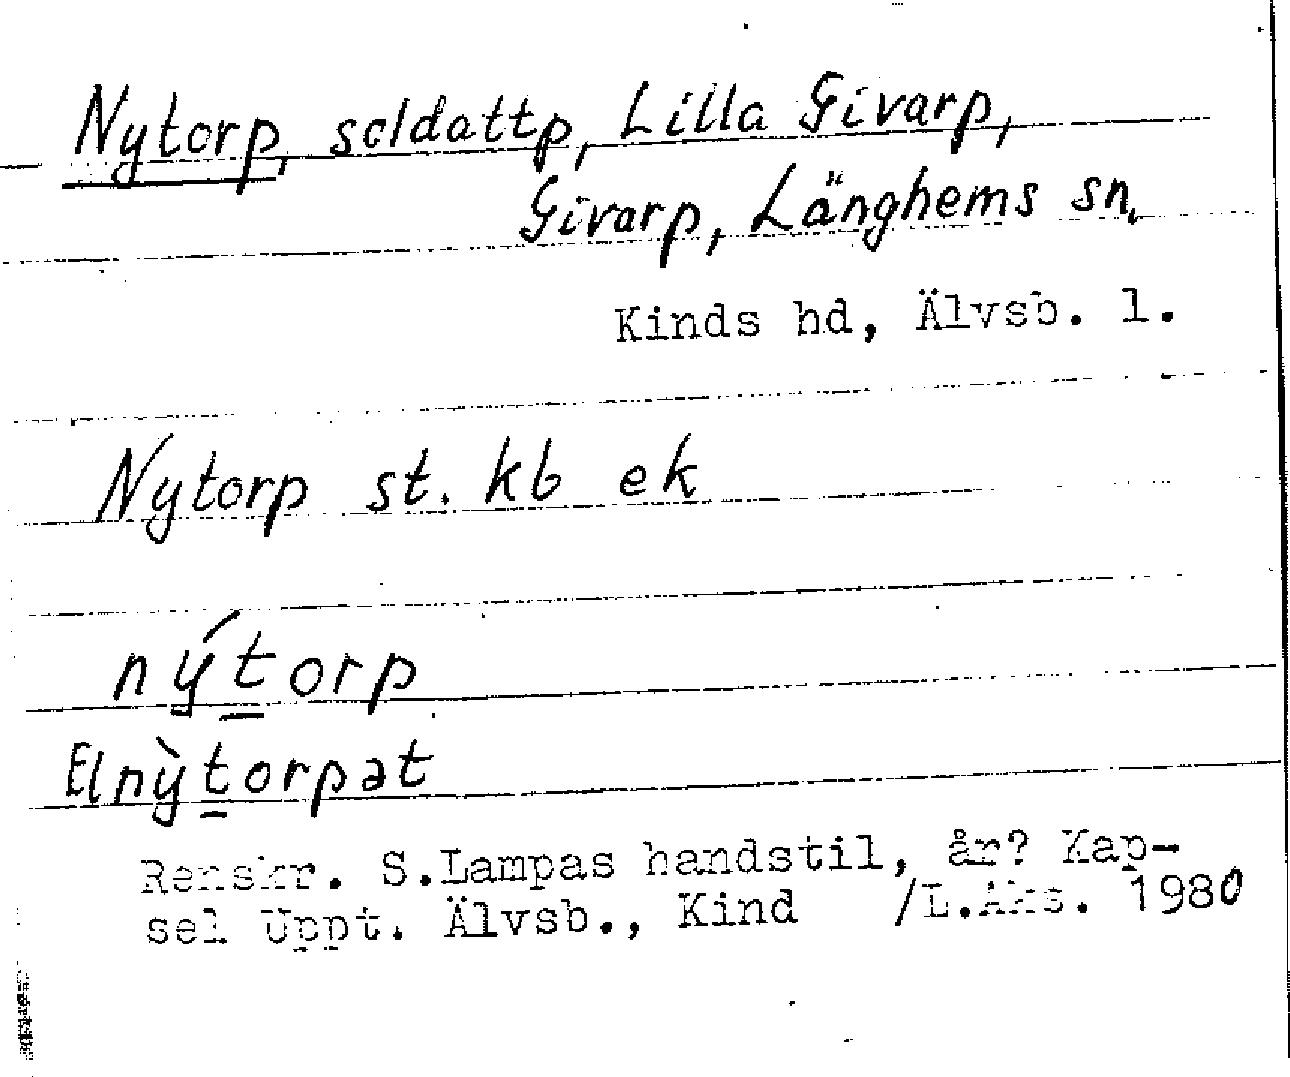 Nytorp, soldattp, Lilla Givarp,
Givarp, Länghems sn,
Kinds hd, Älvsb. l.
Nytorp st. kb ek
nýtorp
El nỳtorpət
Renskr. S.Lampas handstil, år? Kap-
sel Uppt. Älvsb., Kind /L.Aks. 1980